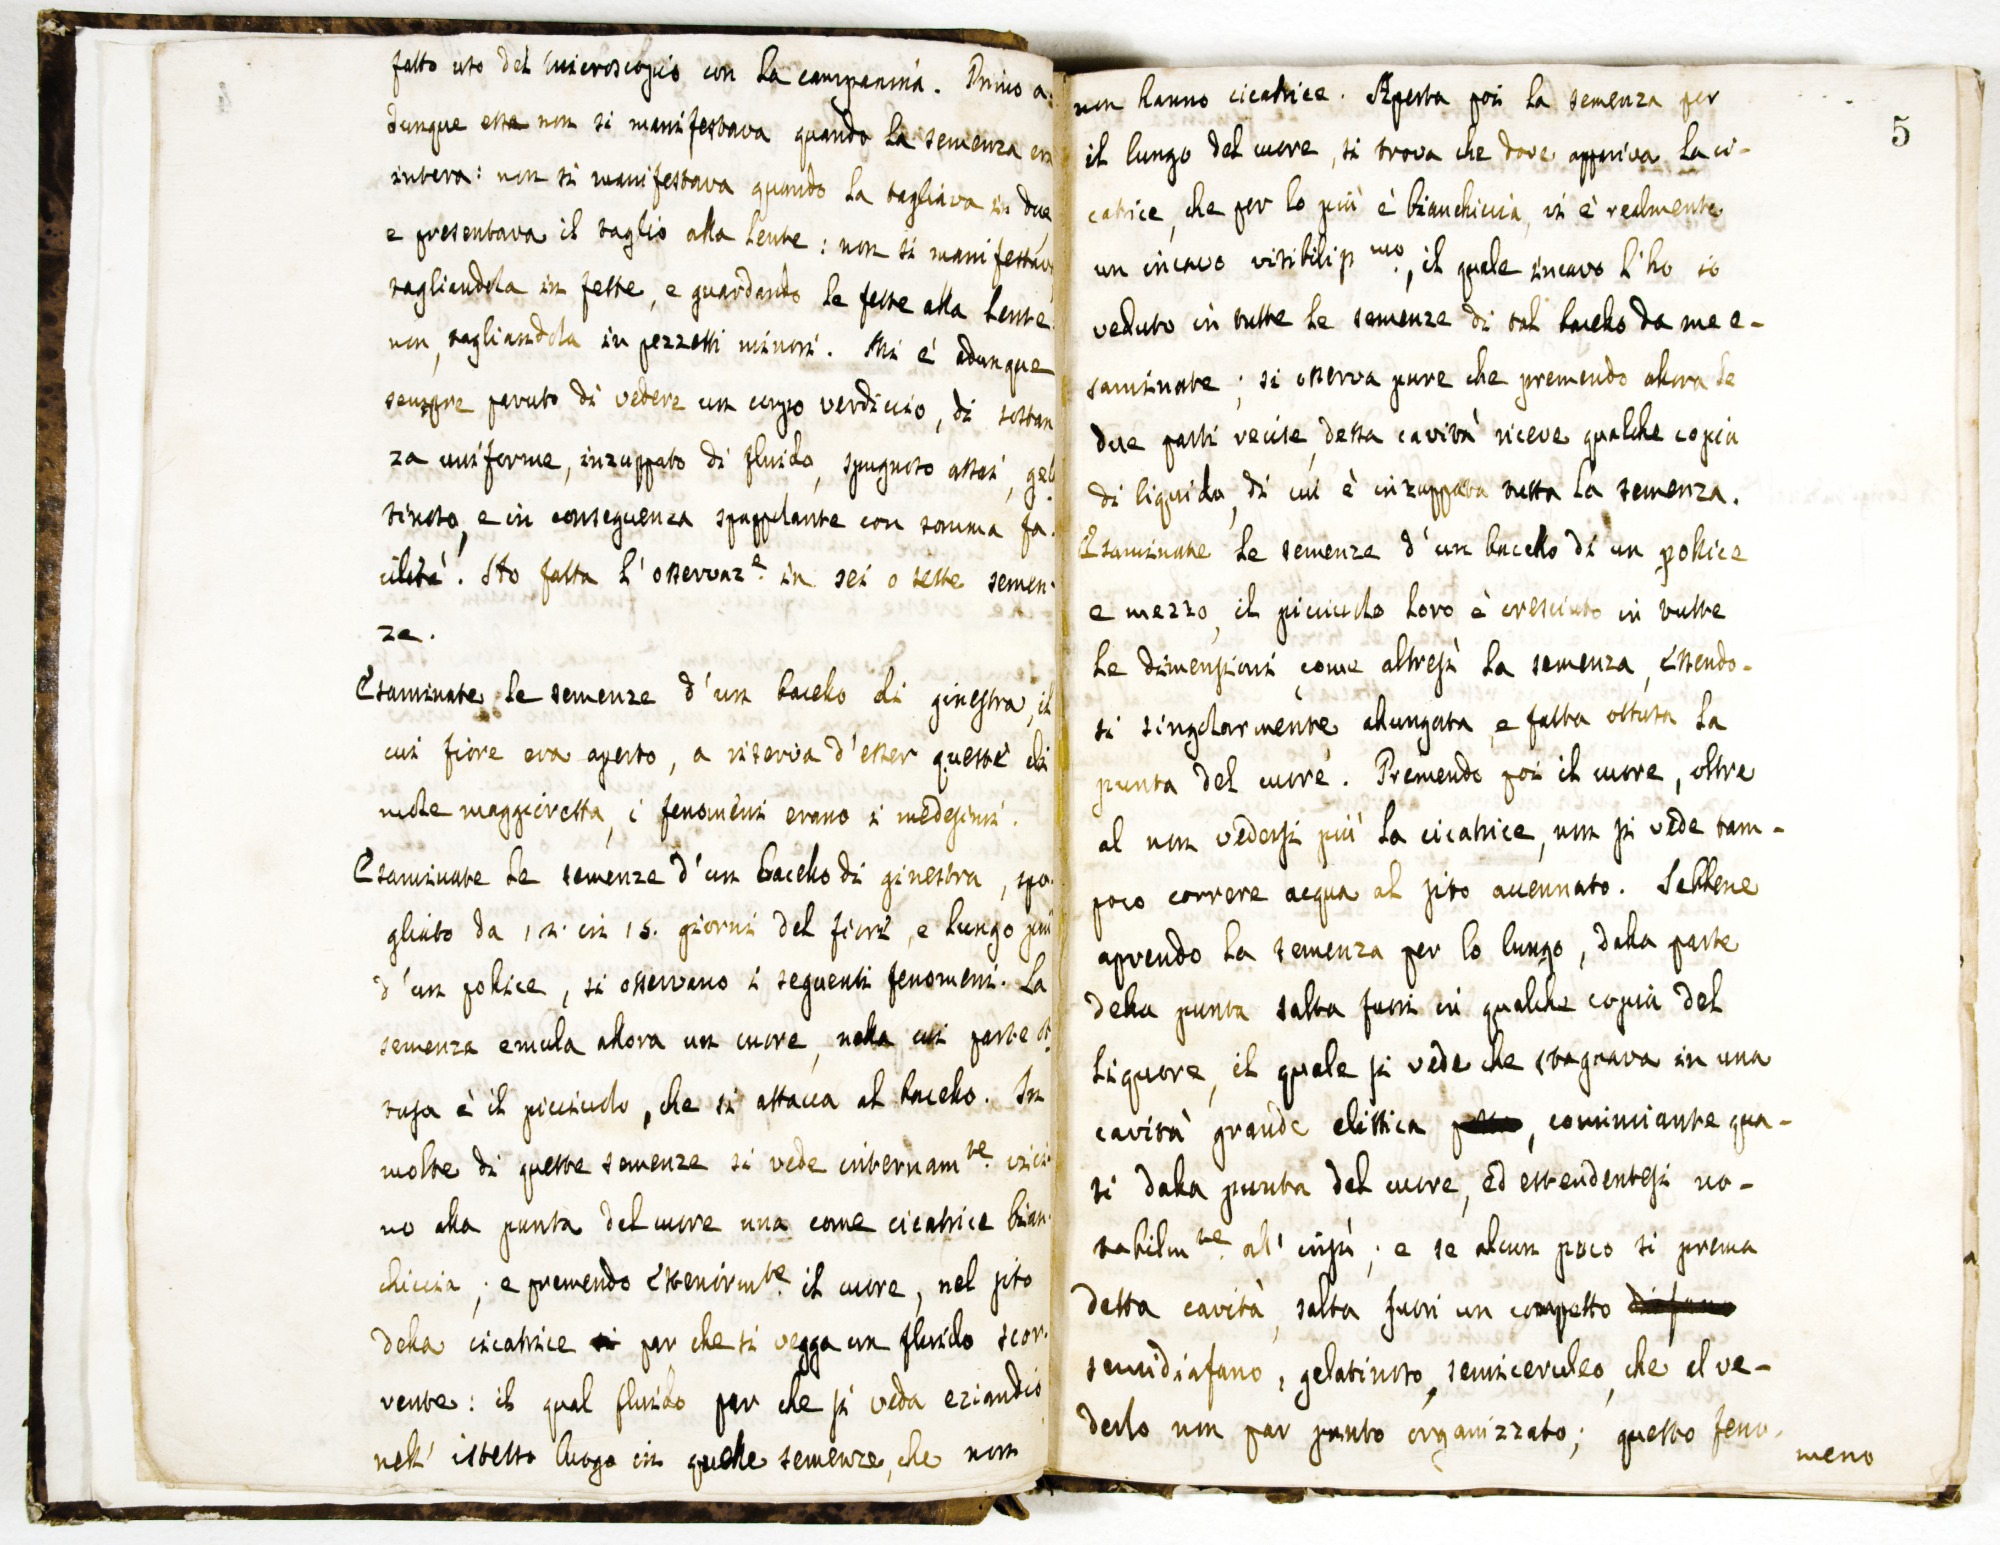 fatto uso del microscopio con la campanina. Primo a-
dunque essa non si manifestava quando la semenza era
intera: non si manifestava quando la tagliava in due
e presentava il taglio alla lente: non si manifestava
tagliandola in fette, e guardando le fette alla lente:
non, tagliandola in pezzetti minori. Mi è adunque
sempre paruto di vedere un corpo verdiccio, di sostan
za uniforme, inzuppato di fluido, spugnoso assai, gela
tinoso, e in conseguenza spappolante con somma fa-
cilità. Ho fatta l'osservaz.e in sei o sette semen-
ze.
Esaminate le semenze d'un bacello di ginestra, il
cui fiore era aperto, a riserva d'esser queste di
mole maggioretta, i fenomeni erano i medesimi.
Esaminate le semenze d'un bacello di ginestra, spo-
gliato da 12. in 15. giorni del fiore, e lungo più
d'un pollice, si osservano i seguenti fenomeni. La
semenza emula allora un cuore, nella cui parte ot-
tusa è il picciuolo, che si attacca al bacello. In
molte di queste semenze si vede internam.te vici-
no alla punta del cuore una come cicatrice bian-
chiccia; e premendo esteriorm.te il cuore, nel sito
della cicatrice par che si vegga un fluido scor-
rente: il qual fluido par che si veda eziandio
nell'istesso luogo in quelle semenze, che non
5
non hanno cicatrice. Aperta poi la semenza per
il lungo del cuore, si trova che dove appariva la ci-
catrice, che per lo più è bianchiccia, vi è realmente
un incavo visibiliss.mo, il quale incavo l'ho io
veduto in tutte le semenze di tal bacello da me e-
saminate; si osserva pure che premendo allora le
due parti recise, detta cavità riceve qualche copia
di liquido, di cui è inzuppata tutta la semenza.
Esaminate le semenze d'un bacello di un pollice
e mezzo, il picciuolo loro è cresciuto in tutte
le dimensioni come altresì la semenza, essendo-
si singolarmente allungata, e fatta ottusa la
punta del cuore. Premendo poi il cuore, oltre
al non vedersi più la cicatrice, non si vede tam-
poco correre acqua al sito accennato. Sebbene
aprendo la semenza per lo lungo, dalla parte
della punta salta fuori in qualche copia del
liquore, il quale si vede che stagnava in una
cavità grande elittica, cominciante qua-
si dalla punta del cuore, ed estendentesi no-
tabilm.te all'insù; e se alcun poco si prema
detta cavità, salta fuori un corpetto diafano
semidiafano, gelatinoso, semiceruleo, che al ve-
derlo non par punto organizzato; questo feno-
meno